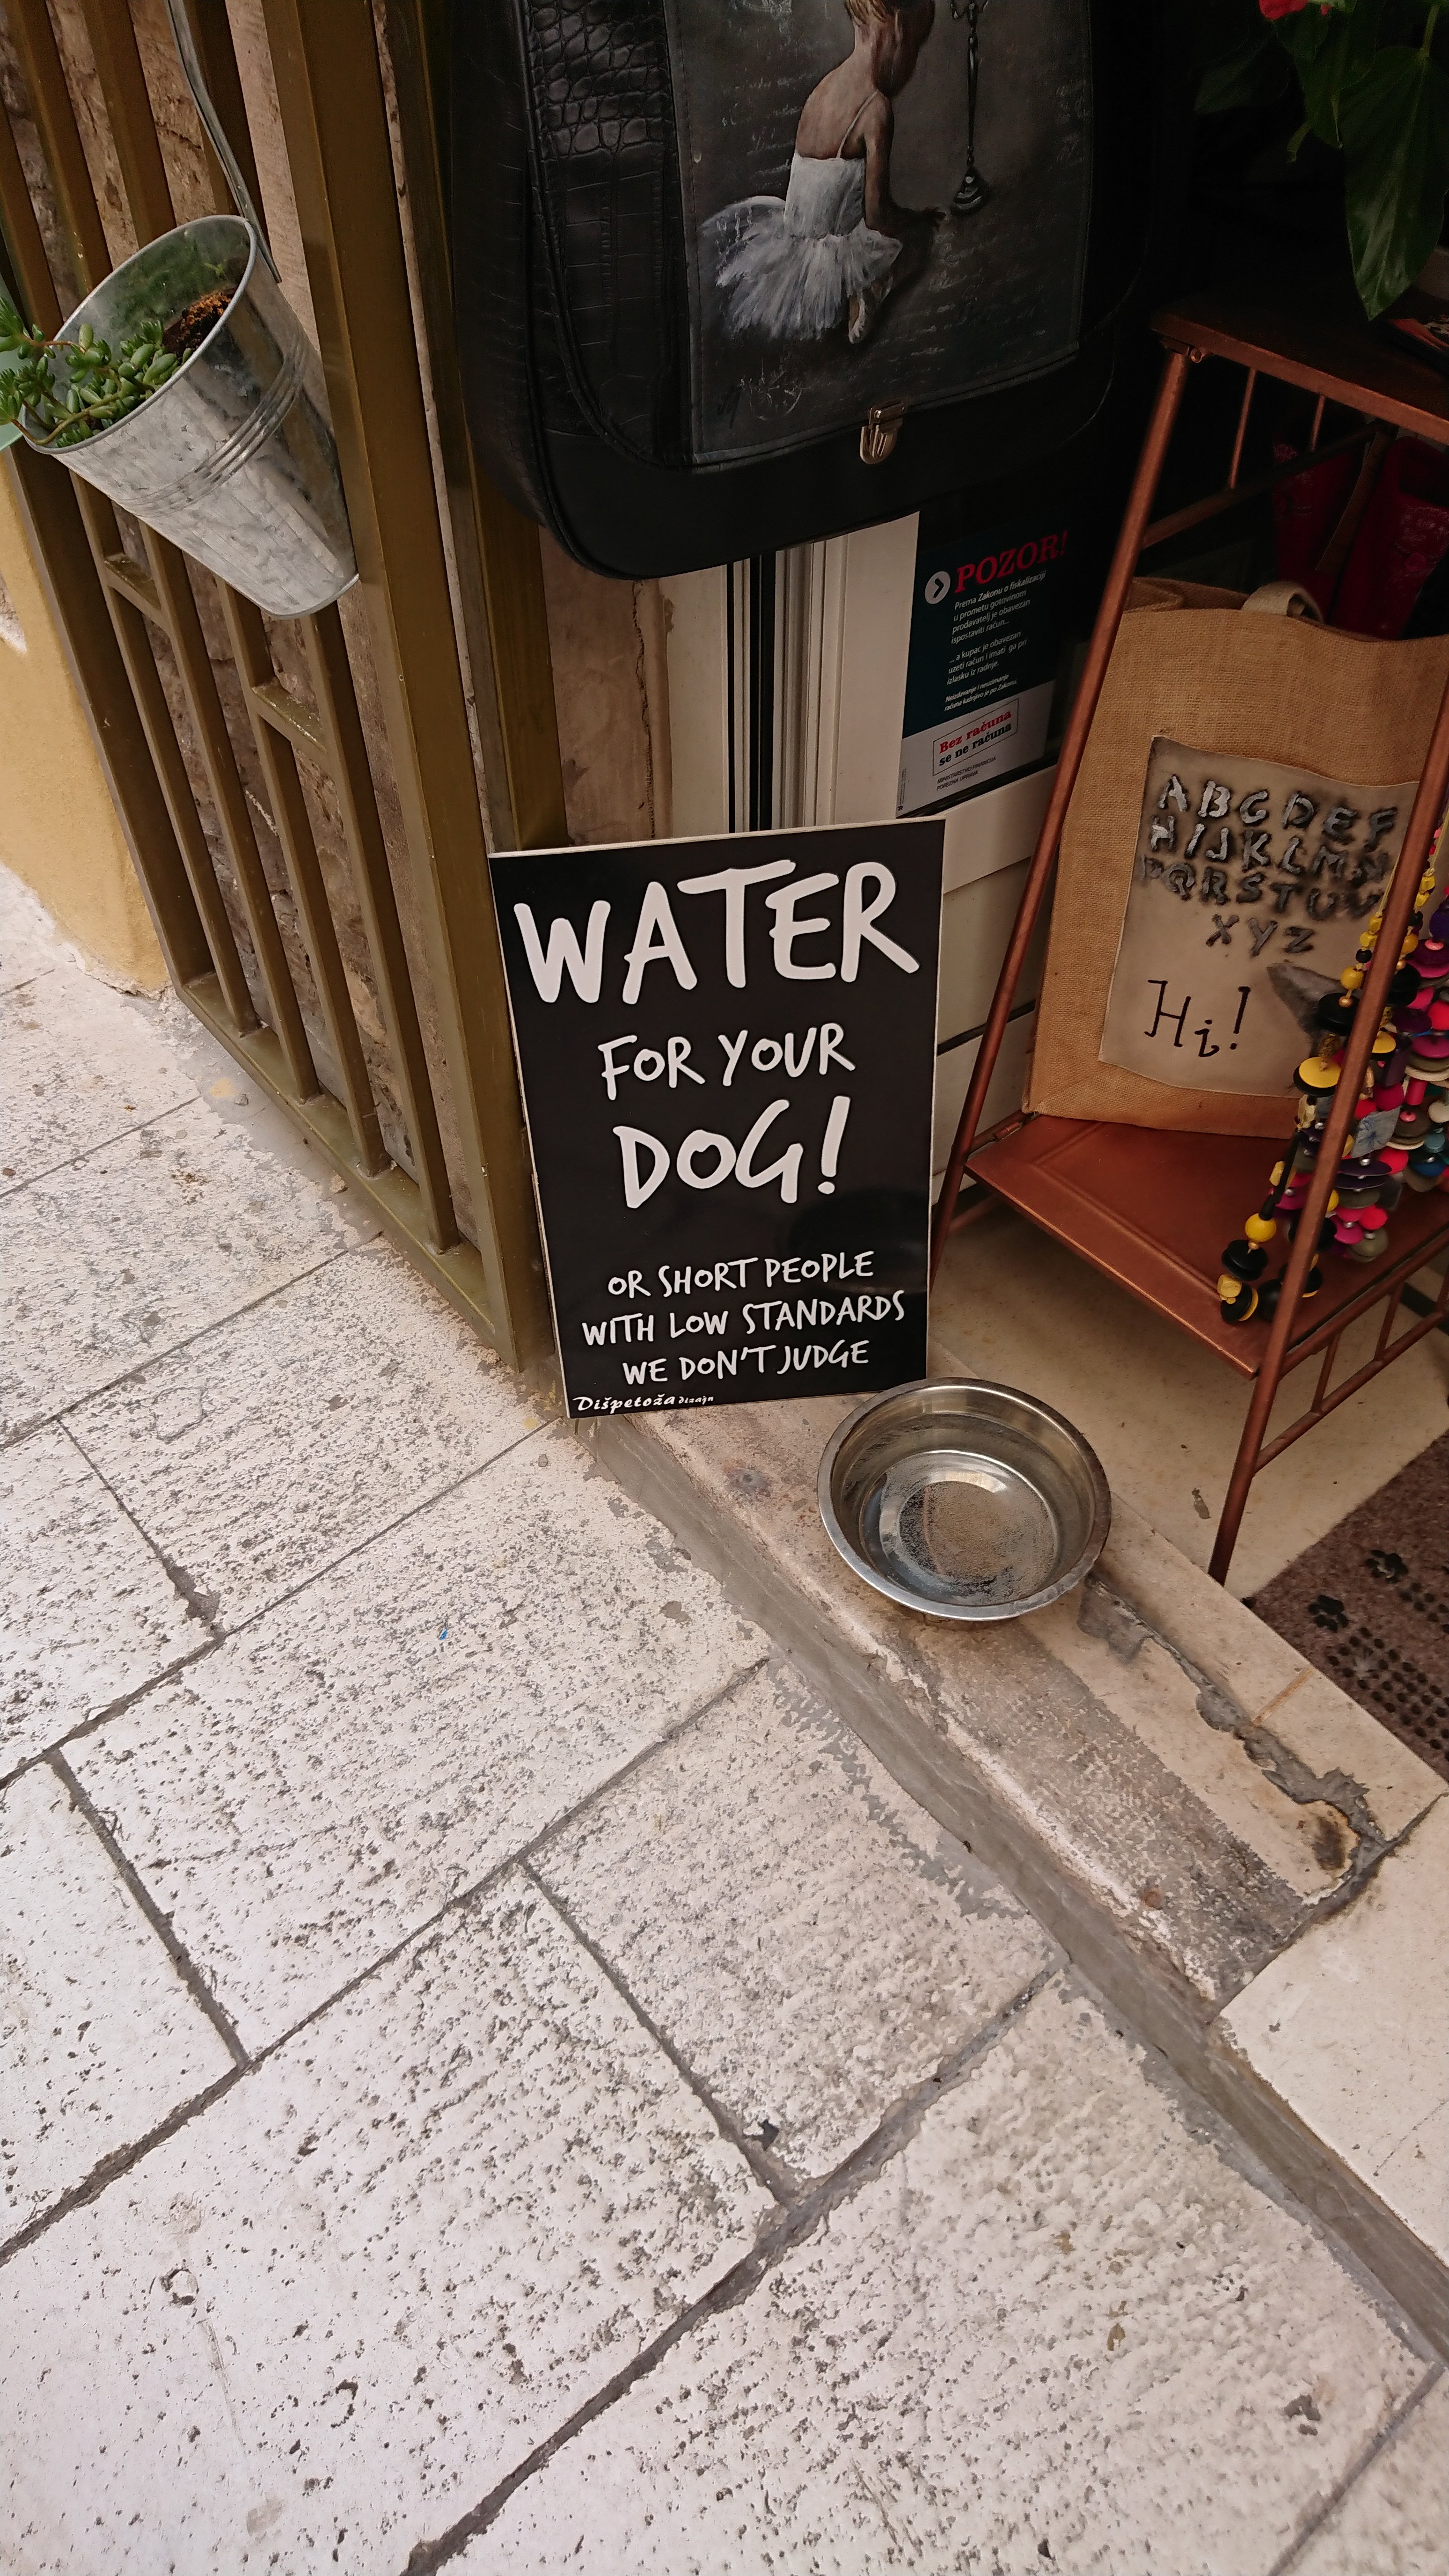 POZOR!
Prema Zakonu o fiskalizaciji
u prometu gotovinom
prodavatelj je obavezan
ispostaviti račun...
... a kupac je obavezan
uzeti račun i imati ga pri
izlasku iz radnje.
Neizdavanje i neuzimanje
računa kažnjivo je po Zakonu.
Bez računa
se ne računa
MINISTARSTVO FINANCIJA
POREZNA UPRAVA
ABCDEF
HIJKLMN
PQRSTUV
XYZ
Hi!
WATER
FOR YOUR
DOG!
OR SHORT PEOPLE
WITH LOW STANDARDS
WE DON'T JUDGE
Dišpetoža dizajn